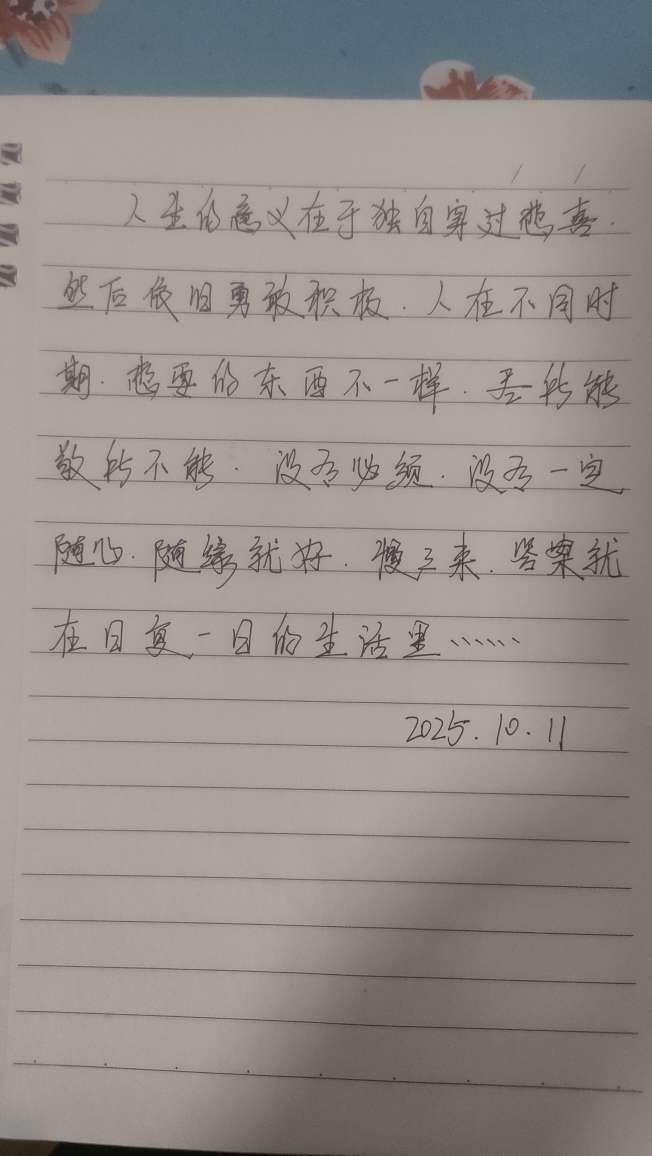 人生的意义在于独自穿过悲喜.
然后依旧勇敢积极.人在不同时
期.想要的东西不一样.丢的能
散的不能.没有必须.没有一定
随心.随缘就好.慢慢来.答案就
在日复一日的生活里……
2025.10.11